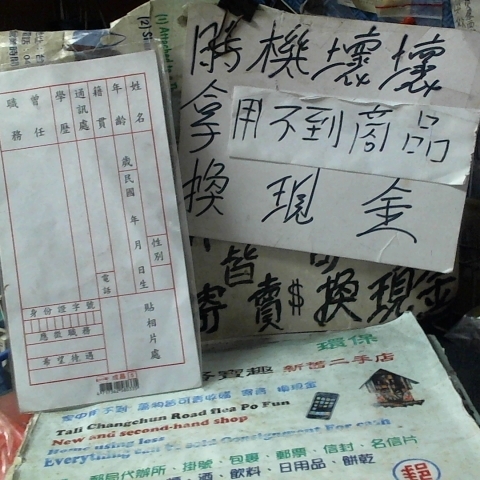 姓名
年齡
籍貫
通訊處
學歷
曾任
職務
歲
民國 年 月 日生
性別
電話
身份證字號
應徵職務
希望待遇
貼相片處
機壞壞
拿用不到商品
換現金
皆
寄賣$換現金
環保
寶趣 新舊二手店
Tali Changchun Road flea Po Fun
New and second-hand shop
Home using less
郵局代辦所、掛號、包裹、郵票、信封、名信片
酒、飲料、日用品、餅乾
郵